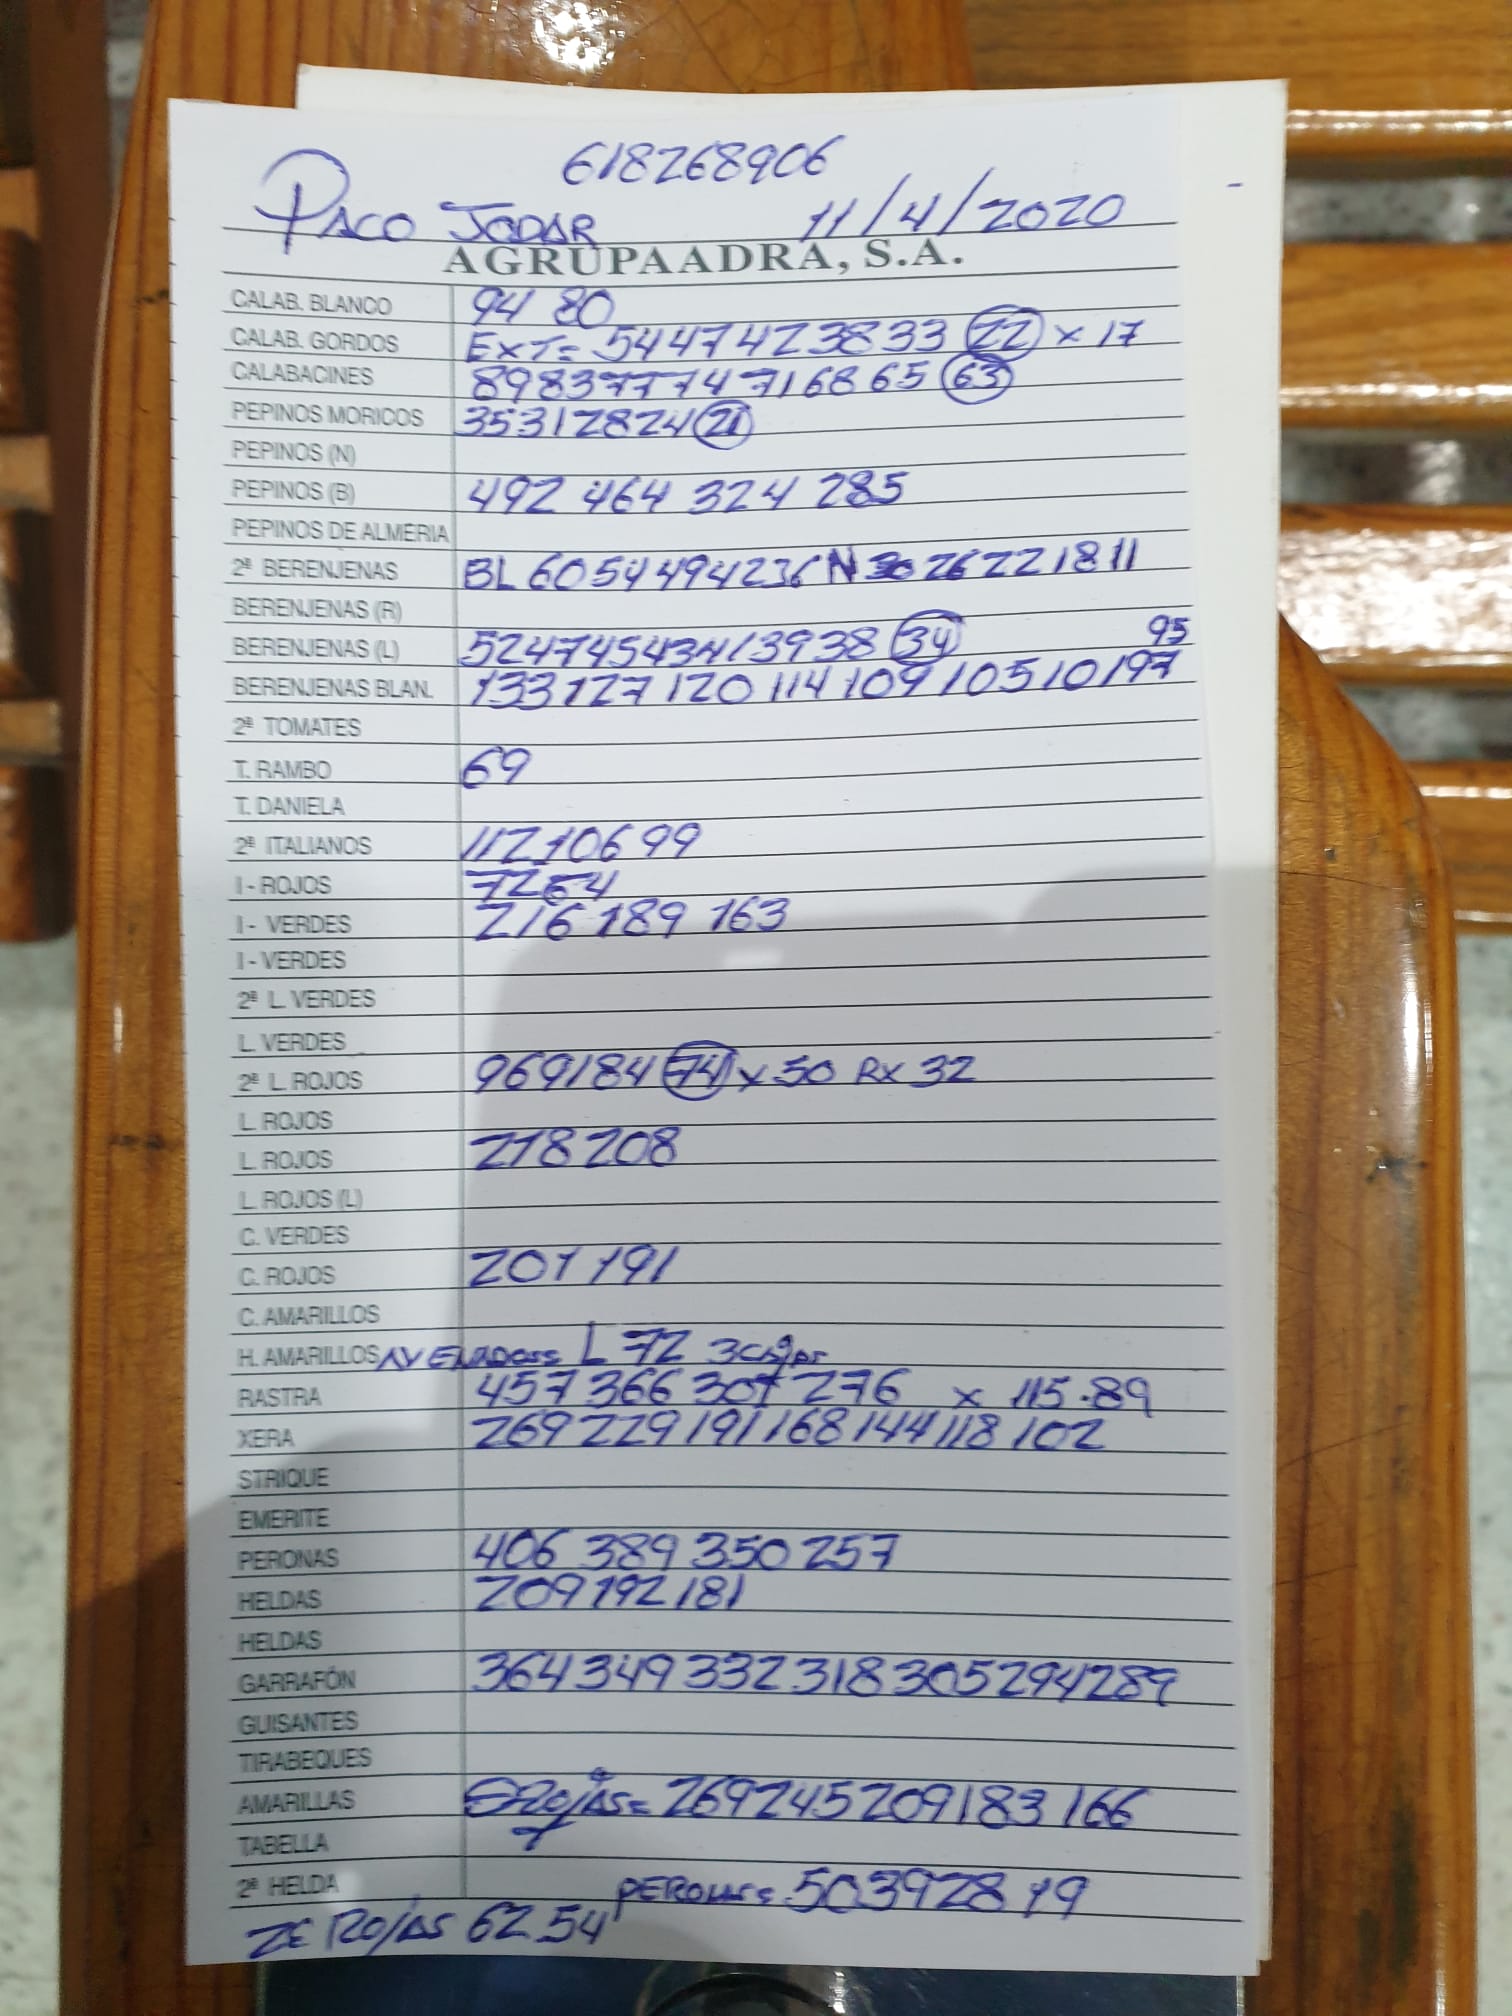 618268906
PACO JODAR 11/4/2020
AGRUPAADRA, S.A.
CALAB. BLANCO 94 80
CALAB. GORDOS EXT= 54474423833 (22) x 17
CALABACINES 8983777474716865 (63)
PEPINOS MORICOS 35312824 (21)
PEPINOS (N)
PEPINOS (B) 492 464 324 285
PEPINOS DE ALMERIA
2ª BERENJENAS BL 6054494236 N 302622 1811
BERENJENAS (R)
BERENJENAS (L) 52474543413938 (34) 95
BERENJENAS BLAN. 133 127 120 114 109 105 101 97
2ª TOMATES
T. RAMBO 69
T. DANIELA
2ª ITALIANOS 112 106 99
I - ROJOS 72 64
I - VERDES 216 189 163
I - VERDES
2ª L. VERDES
L. VERDES
2ª L. ROJOS 969184 (74) x 50 Rx 32
L. ROJOS
L. ROJOS 218 208
L. ROJOS (L)
C. VERDES
C. ROJOS 201 191
C. AMARILLOS
H. AMARILLOS L 72
RASTRA 457 366 307 276 x 115.89
XERA 269 229 191 168 144 118 102
STRIQUE
EMERITE
PERONAS 406 389 350 257
HELDAS 209 192 181
HELDAS
GARRAFÓN 364 349 332 318 305 294 289
GUISANTES
TIRABEQUES
AMARILLAS ROJAS= 269 245 209 183 166
TABELLA
2ª HELDA 50392819
ZE ROJAS 62 54